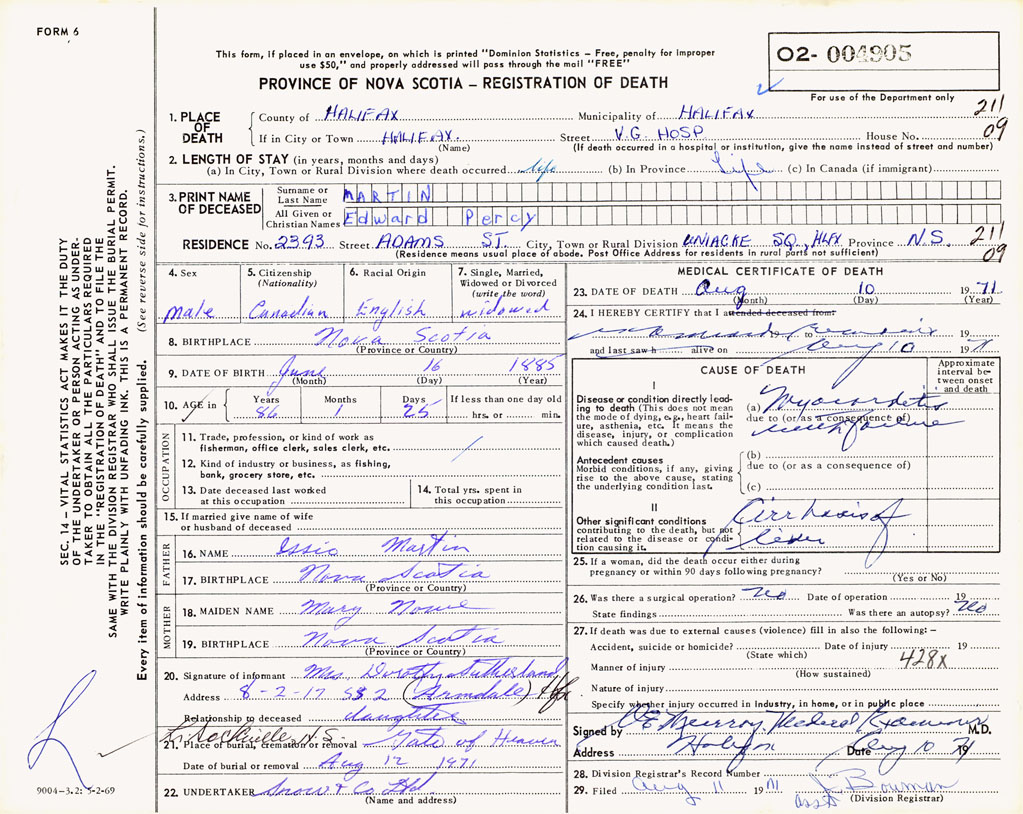 FORM 6
This form, if placed in an envelope, on which is printed "Dominion Statistics – Free, penalty for improper
use $50," and properly addressed will pass through the mail "FREE"
PROVINCE OF NOVA SCOTIA – REGISTRATION OF DEATH
02- 004905
For use of the Department only
1. PLACE OF DEATH County of HALIFAX Municipality of HALIFAX 211
If in City or Town HALIFAX. Street V.G. HOSP House No. 09
(Name) (If death occurred in a hospital or institution, give the name instead of street and number)
2. LENGTH OF STAY (in years, months and days)
(a) In City, Town or Rural Division where death occurred life (b) In Province Life (c) In Canada (if immigrant)
3. PRINT NAME OF DECEASED Surname or Last Name MARTIN
All Given or Christian Names Edward Percy
RESIDENCE No. 2393 Street ADAMS ST. City, Town or Rural Division UNIACKE SQ, HLFX Province N.S. 211
(Residence means usual place of abode. Post Office Address for residents in rural parts not sufficient) 09
4. Sex 5. Citizenship (Nationality) 6. Racial Origin 7. Single, Married, Widowed or Divorced (write the word)
Male Canadian English widowed
8. BIRTHPLACE Nova Scotia
(Province or Country)
9. DATE OF BIRTH June 16 1885
(Month) (Day) (Year)
10. AGE in Years Months Days If less than one day old
86 1 25 hrs. or min.
OCCUPATION
11. Trade, profession, or kind of work as
fisherman, office clerk, sales clerk, etc.
12. Kind of industry or business, as fishing,
bank, grocery store, etc.
13. Date deceased last worked at this occupation 14. Total yrs. spent in this occupation
15. If married give name of wife
or husband of deceased
FATHER
16. NAME Martin
17. BIRTHPLACE Nova Scotia
(Province or Country)
MOTHER
18. MAIDEN NAME Mary
19. BIRTHPLACE Nova Scotia
(Province or Country)
20. Signature of informant Mrs Dorothy Sutherland
Address 8-2-17 SS 2 (Armdale) Hfx
Relationship to deceased daughter
L. Sackville, N.S.
21. Place of burial, cremation or removal Gate of Heaven
Date of burial or removal Aug 12 1971
22. UNDERTAKER Snow & Co Ltd
(Name and address)
MEDICAL CERTIFICATE OF DEATH
23. DATE OF DEATH Aug 10 1971
(Month) (Day) (Year)
24. I HEREBY CERTIFY that I attended deceased from
to 19
and last saw h alive on Aug 10 197
CAUSE OF DEATH
Approximate interval between onset and death
I
Disease or condition directly leading
to death (This does not mean
the mode of dying, e.g., heart failure,
asthenia, etc. It means the
disease, injury, or complication
which caused death.)
(a) Myocarditis
due to (or as a consequence of)
failure
Antecedent causes
Morbid conditions, if any, giving
rise to the above cause, stating
the underlying condition last.
(b)
due to (or as a consequence of)
(c)
II
Other significant conditions
contributing to the death, but not
related to the disease or condition
causing it.
Cirrhosis of
liver
25. If a woman, did the death occur either during
pregnancy or within 90 days following pregnancy?
(Yes or No)
26. Was there a surgical operation? No Date of operation 19
State findings Was there an autopsy? No
27. If death was due to external causes (violence) fill in also the following: –
Accident, suicide or homicide? Date of injury 19
(State which) 428x
Manner of injury
(How sustained)
Nature of injury
Specify whether injury occurred in industry, in home, or in public place
Signed by Murray, Medical Examiner M.D.
Address Date Aug 10 1971
28. Division Registrar's Record Number
29. Filed Aug 11 1971 Bowman
asst (Division Registrar)
SEC. 14 – VITAL STATISTICS ACT MAKES IT THE DUTY
OF THE UNDERTAKER OR PERSON ACTING AS UNDER-
TAKER TO OBTAIN ALL THE PARTICULARS REQUIRED
IN THE "REGISTRATION OF DEATH" AND TO FILE THE
SAME WITH THE DIVISION REGISTRAR WHO SHALL ISSUE THE BURIAL PERMIT.
WRITE PLAINLY WITH UNFADING INK. THIS IS A PERMANENT RECORD.
Every item of information should be carefully supplied. (See reverse side for instructions.)
9004-3.2: 5-2-69